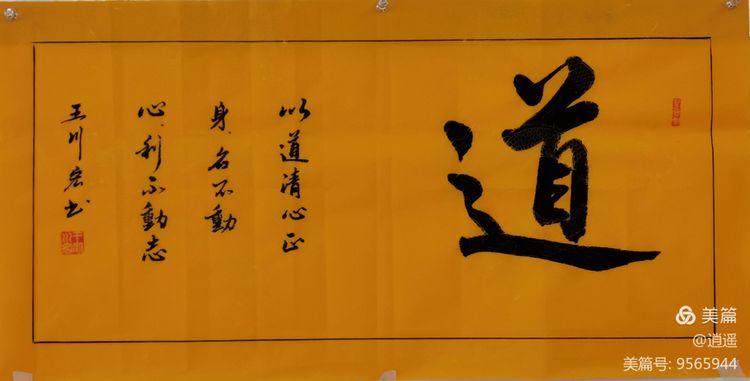 道
以道清心正
身名不動
心利不動志
王川宏书
美篇
@逍遥
美篇号: 9565944